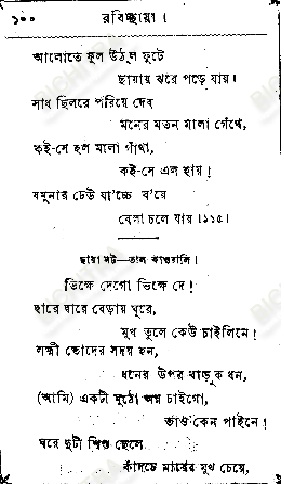 ১০০ রবিচ্ছায়া।
আলোতে ফুল উঠল ফুটে
ছায়ায় ঝরে পড়ে যায়।
সাধ ছিলরে পরিয়ে দেব
মনের মতন মালা গেঁথে,
কই-সে হল মালা গাঁথা,
কই-সে এল হায়!
যমুনার ঢেউ যা'চ্চে ব'য়ে
বেলা চলে যায়।১১৫।
ছায়া নট—তাল কাওয়ালি।
ভিক্ষে দেগো ভিক্ষে দে!
দ্বারে দ্বারে বেড়ায় ঘুরে,
মুখ তুলে কেউ চাইলিনে!
লক্ষ্মী তোদের সদয় হন,
ধনের উপর বাড়ুক ধন,
(আমি) একটী মুঠো অন্ন চাইগো,
তাও কেন পাইনে!
ঘরে দুটী শিশু ছেলে
কাঁদচে মায়ের মুখ চেয়ে,